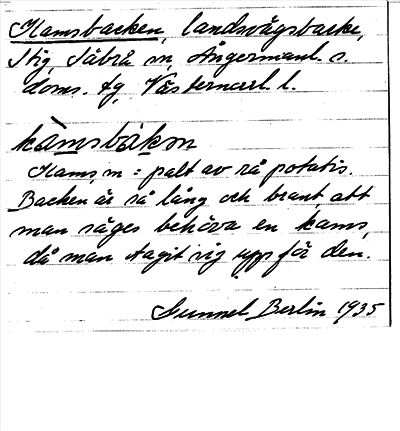 Kamsbacken, landsvägsbacke,
Stig, Säbrå sn, Ångermanl. s.
doms. tg, Västernorrl. l.
kàmsbákₐn
Kams, m = palt av rå potatis.
Backen är så lång och brant, att
man säges behöva en kams,
då man tagit sig uppför den.
Gunnel Berlin 1935